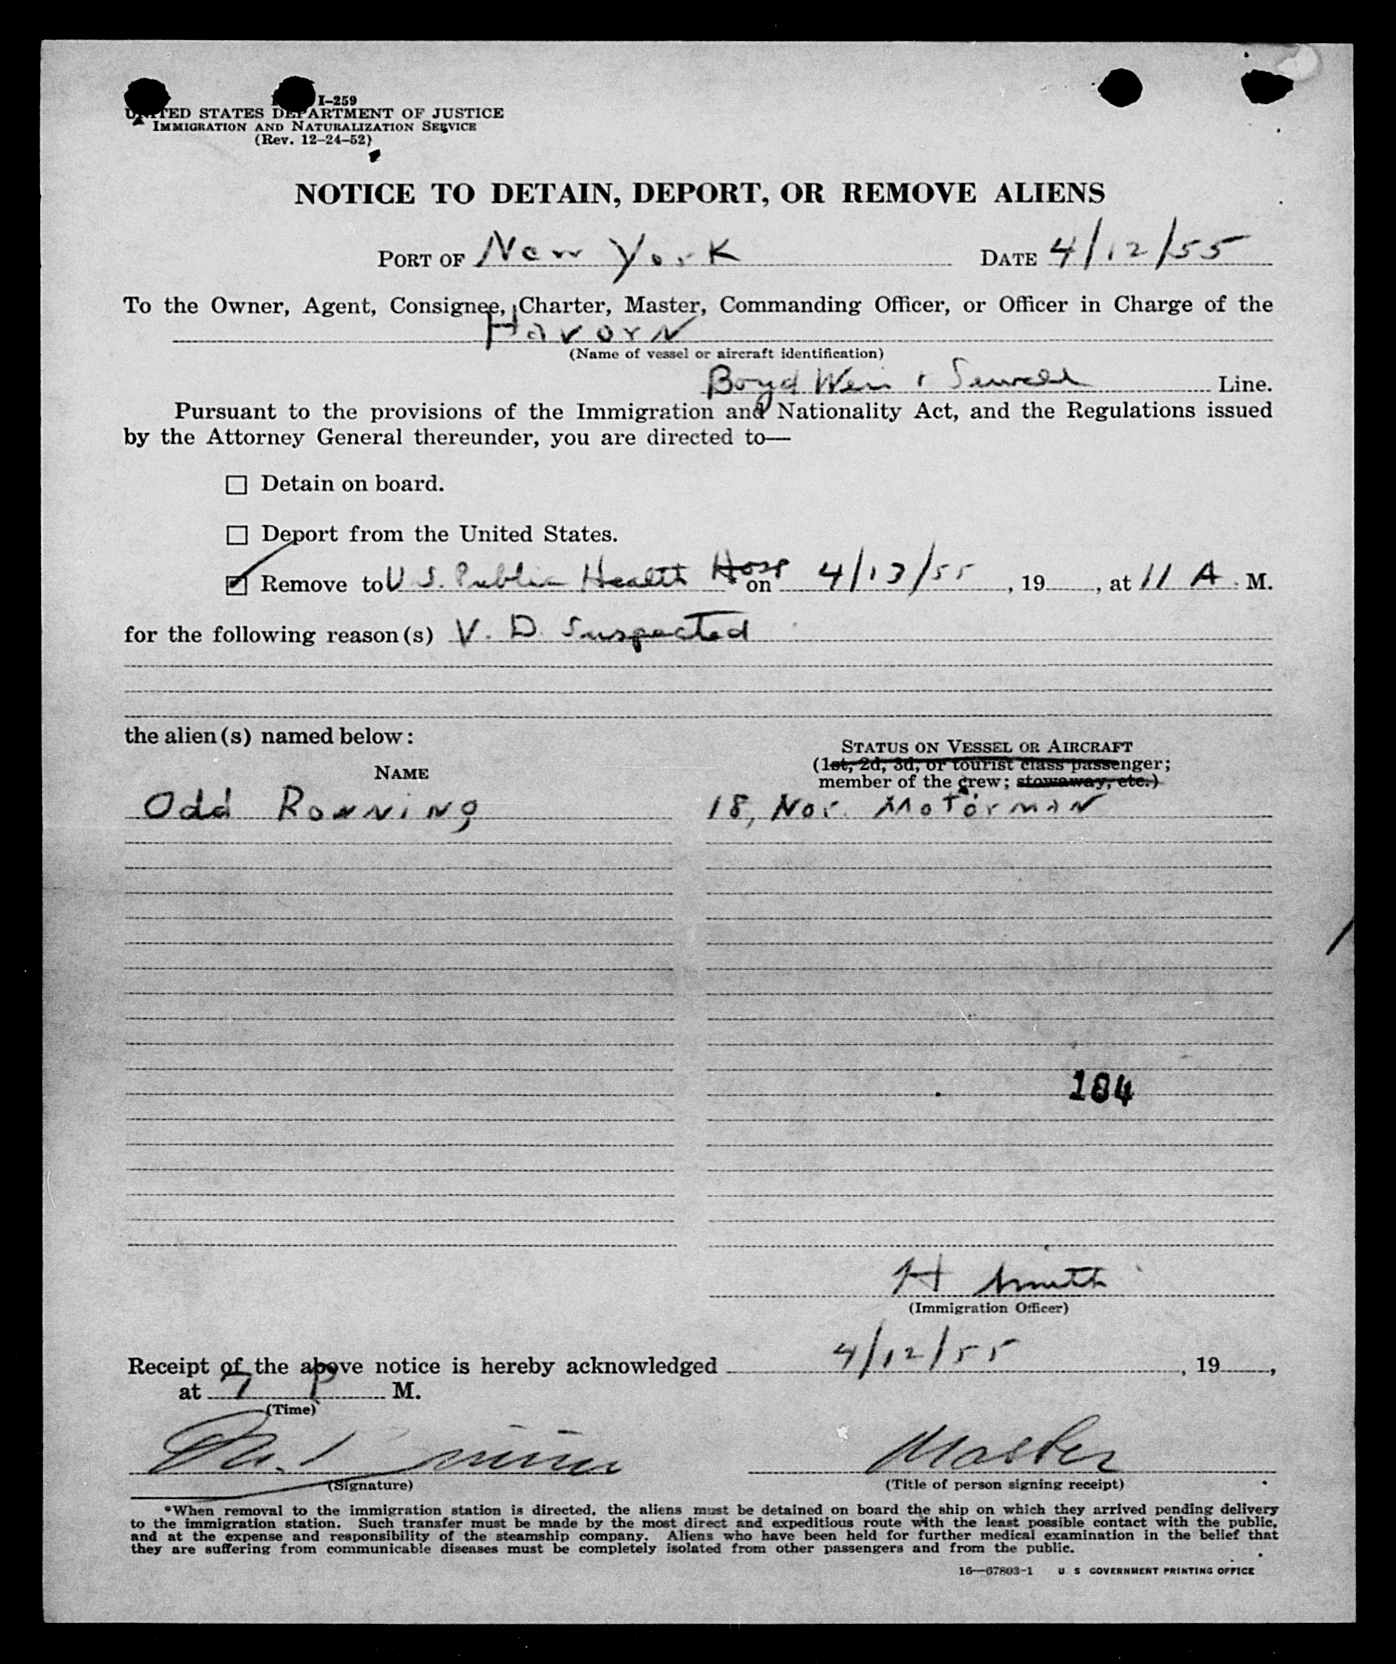 I-259
UNITED STATES DEPARTMENT OF JUSTICE
IMMIGRATION AND NATURALIZATION SERVICE
(Rev. 12-24-52)
NOTICE TO DETAIN, DEPORT, OR REMOVE ALIENS
PORT OF New York DATE 4/12/55
To the Owner, Agent, Consignee, Charter, Master, Commanding Officer, or Officer in Charge of the
Havorn
(Name of vessel or aircraft identification)
Boyd Weir & Sewell Line.
Pursuant to the provisions of the Immigration and Nationality Act, and the Regulations issued
by the Attorney General thereunder, you are directed to—
☐ Detain on board.
☐ Deport from the United States.
☑ Remove to U S. Public Health Hosp * on 4/13/55, 19, at 11 A. M.
for the following reason(s) V. D. Suspected
the alien(s) named below:
STATUS ON VESSEL OR AIRCRAFT
NAME
(1st, 2d, 3d, or tourist class passenger;
member of the crew; stowaway, etc.)
Odd Ronning 18, Nor. Motorman
184
H Smith
(Immigration Officer)
Receipt of the above notice is hereby acknowledged 4/12/55, 19,
at 7 P M.
(Time)
Master
(Signature) (Title of person signing receipt)
*When removal to the immigration station is directed, the aliens must be detained on board the ship on which they arrived pending delivery
to the immigration station. Such transfer must be made by the most direct and expeditious route with the least possible contact with the public,
and at the expense and responsibility of the steamship company. Aliens who have been held for further medical examination in the belief that
they are suffering from communicable diseases must be completely isolated from other passengers and from the public.
16—67803-1 U S GOVERNMENT PRINTING OFFICE